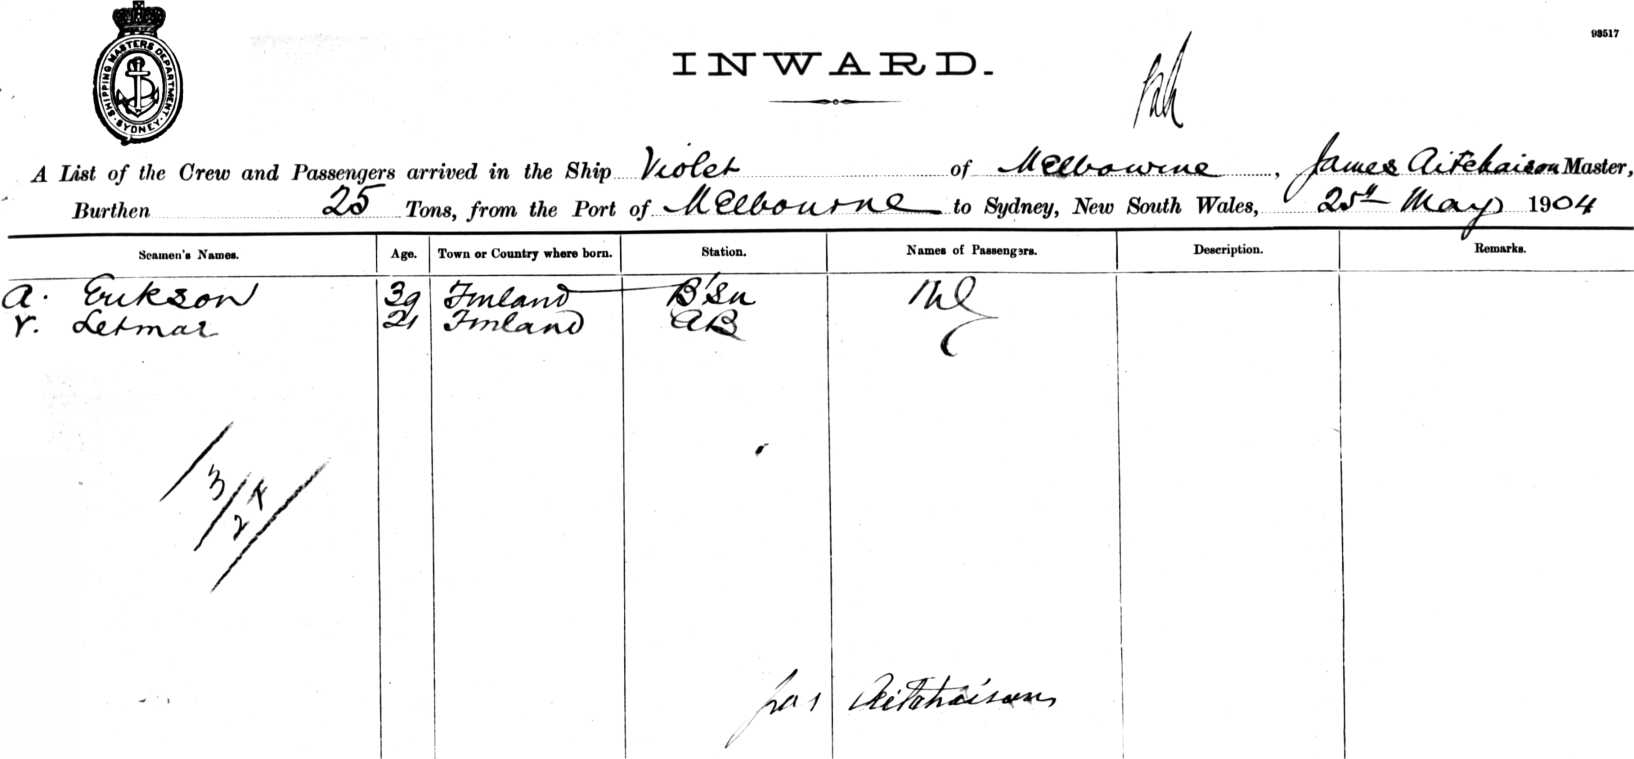 SHIPPING MASTERS DEPARTMENT. SYDNEY.
93517
INWARD.
A List of the Crew and Passengers arrived in the Ship Violet of Melbourne, James Aitchaison Master,
Burthen 25 Tons, from the Port of Melbourne to Sydney, New South Wales, 25th May 1904
Seamen's Names. Age. Town or Country where born. Station. Names of Passengers. Description. Remarks.
A. Erikson 39 Finland B'Sn Nil
V. Letmar 21 Finland AB
3/2 +
Jas Aitchaison